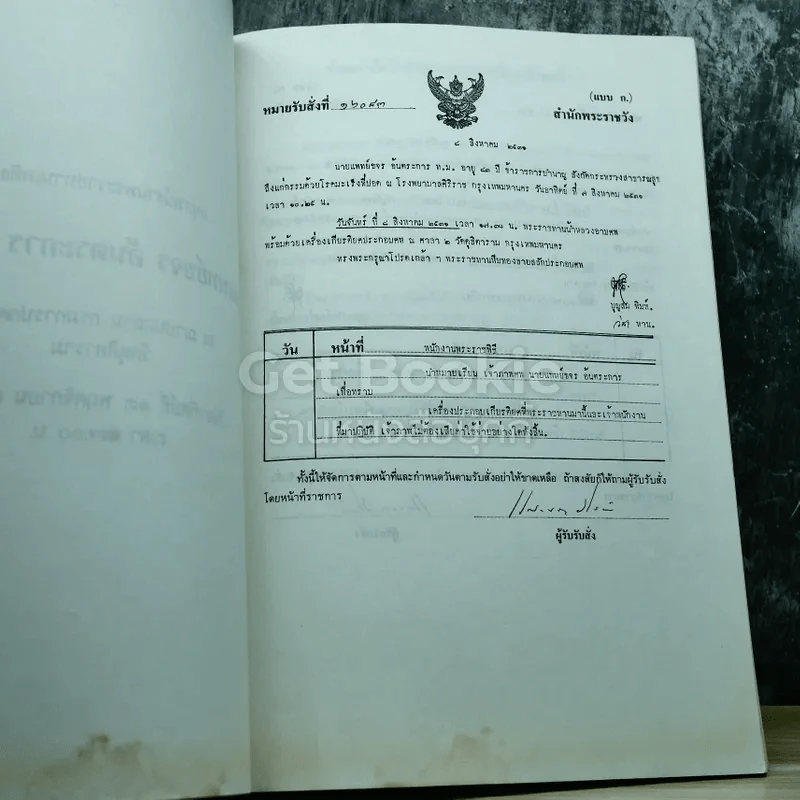 (แบบ ก.)
หมายรับสั่งที่ ๑๖๐๘๓
สำนักพระราชวัง
๘ สิงหาคม ๒๕๓๑
นายแพทย์ขจร อันตระการ ท.ม. อายุ ๘๓ ปี ข้าราชการบำนาญ สังกัดกระทรวงสาธารณสุข
ถึงแก่กรรมด้วยโรคมะเร็งที่ปอด ณ โรงพยาบาลศิริราช กรุงเทพมหานคร วันอาทิตย์ ที่ ๗ สิงหาคม ๒๕๓๑
เวลา ๑๐.๒๕ น.
วันจันทร์ ที่ ๘ สิงหาคม ๒๕๓๑ เวลา ๑๗.๓๐ น. พระราชทานน้ำหลวงอาบศพ
พร้อมด้วยเครื่องเกียรติยศประกอบศพ ณ ศาลา ๒ วัดธาตุทอง กรุงเทพมหานคร
ทรงพระกรุณาโปรดเกล้า ฯ พระราชทานหีบทองลายสลักประกอบศพ
บุญสม พิมพ์.
ทาน.
วัน
หน้าที่
พนักงานพระราชพิธี
นำหมายเรียน เจ้าภาพศพ นายแพทย์ขจร อันตระการ
เพื่อทราบ
เครื่องประกอบเกียรติยศที่พระราชทานมานี้และเจ้าพนักงาน
ที่มาปฏิบัติ เจ้าภาพไม่ต้องเสียค่าใช้จ่ายอย่างใดทั้งสิ้น.
ทั้งนี้ให้จัดการตามหน้าที่และกำหนดวันตามรับสั่งอย่าให้ขาดเหลือ ถ้าสงสัยก็ให้ถามผู้รับรับสั่ง
โดยหน้าที่ราชการ
ผู้รับรับสั่ง
Get Bookie
ร้านหนังสือยุคเก่า